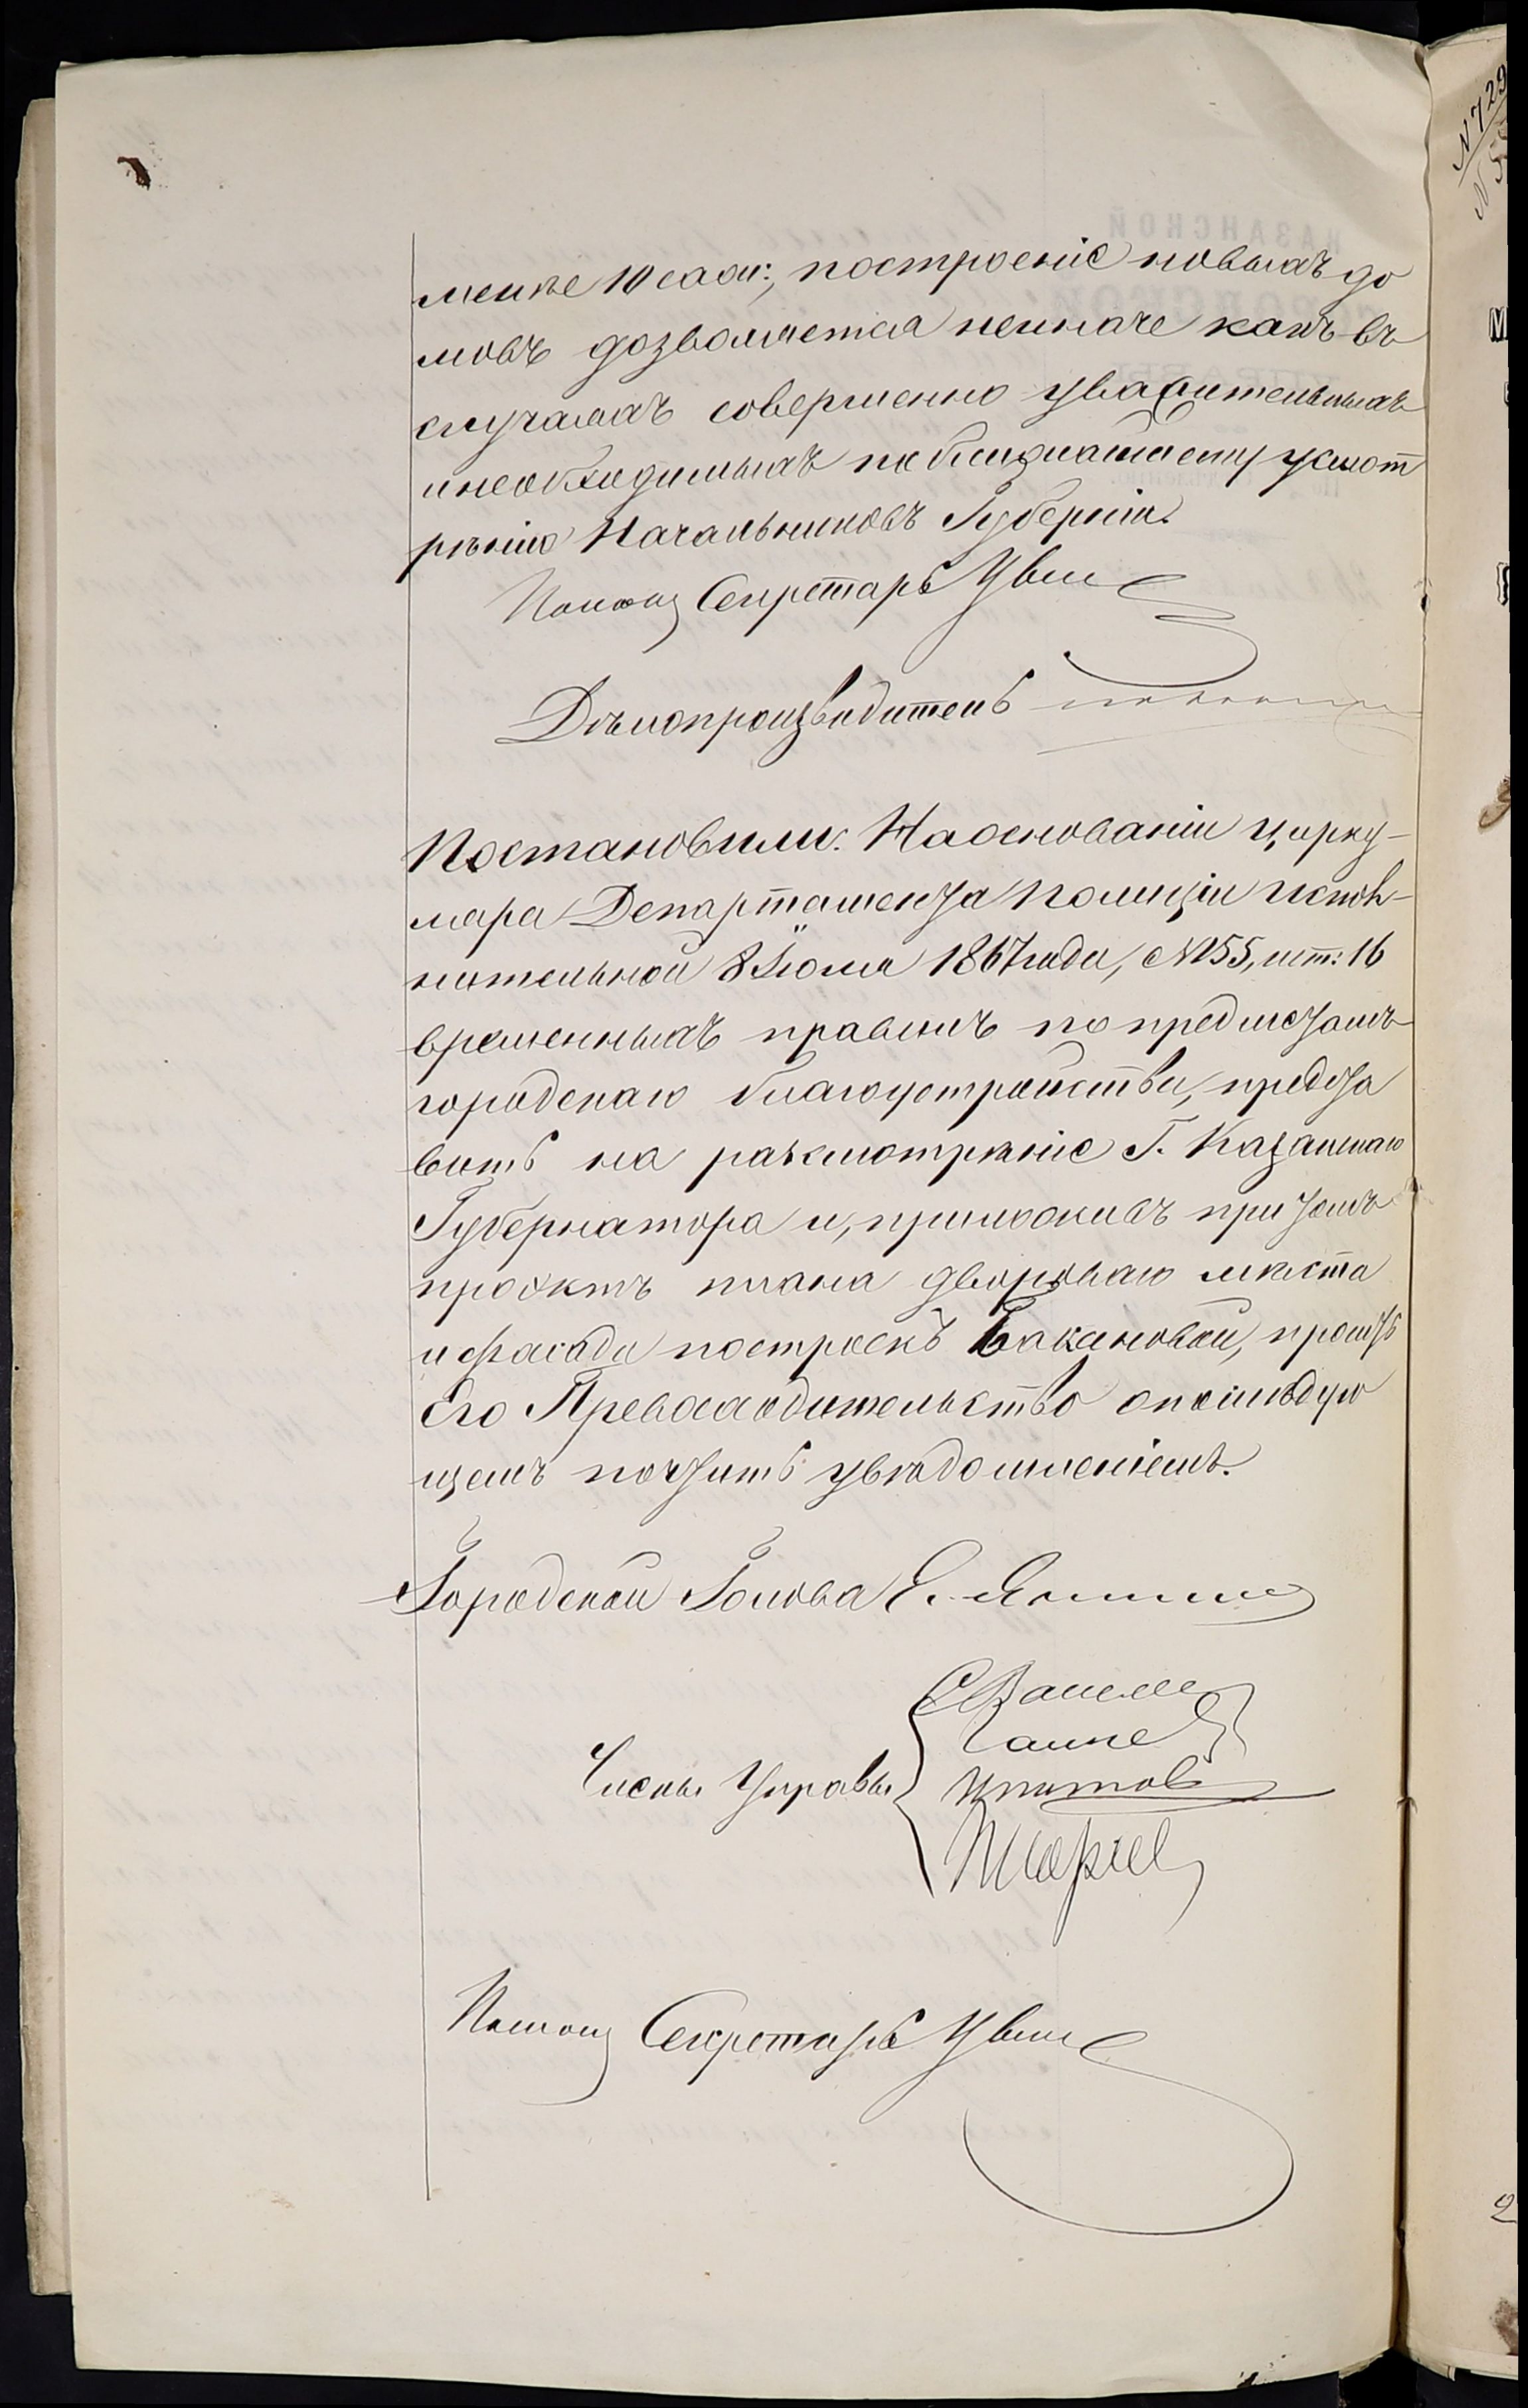 менѣе 10 саж:, построеніе новыхъ до
мовъ дозволяется неиначе какъ въ
случаяхъ совершенно уважительныхъ
и необходимыхъ по ближайшему усмот
рѣнію Начальниковъ Губерніи.
Помощ Секретаря
Дѣлопроизводитель
Постановили: На основаніи цирку-
ляра Департамента Полиціи Испол-
нительной 8 Іюля 1867 года, №155, ст: 16
временныхъ правилъ по предметамъ
городскаго благоустройства, предста
вить на разсмотрѣніе Г. Казанскаго
Губернатора и, приложивъ при томъ
проэктъ плана двороваго мѣста
и фасада построекъ Бакановой, просить
Его Превосходительство о послѣдую
щемъ почтить увѣдомленіемъ.
Городской Голова
Члены Управы
Помощ Секретаря
КАЗАНСКОЙ
N 729